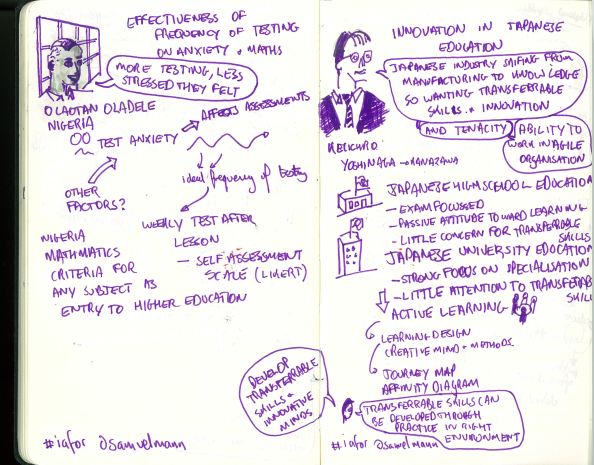 EFFECTIVENESS OF
FREQUENCY OF TESTING
ON ANXIETY + MATHS
MORE TESTING, LESS
STRESSED THEY FELT
OLAOTAN OLADELE
NIGERIA
TEST ANXIETY
AFFECTS ASSESSMENTS
ideal frequency of testing
OTHER
FACTORS?
WEEKLY TEST AFTER
LESSON
- SELF ASSESSMENT
SCALE (LIKERT)
NIGERIA
MATHMATICS
CRITERIA FOR
ANY SUBJECT AS
ENTRY TO HIGHER EDUCATION
#iafor @samuelmann
INNOVATION IN JAPANESE
EDUCATION
JAPANESE INDUSTRY SHIFING FROM
MANUFACTURING TO KNOWLEDGE
SO WANTING TRANSFERRABLE
SKILLS + INNOVATION
AND TENACITY
ABILITY TO
WORK IN AGILE
ORGANISATION
KEIICHIRO
YOSHINAGA - KANAZAWA
JAPANESE HIGH SCHOOL EDUCATION
- EXAM FOCUSSED
- PASSIVE ATTITUDE TOWARD LEARNING
- LITTLE CONCERN FOR TRANSFERABLE
SKILLS
JAPANESE UNIVERSITY EDUCATION
- STRONG FOCUS ON SPECIALISATION
- LITTLE ATTENTION TO TRANSFERAB
SKILL
ACTIVE LEARNING
LEARNING DESIGN
CREATIVE MIND + METHODS
JOURNEY MAP
AFFINITY DIAGRAM
DEVELOP
TRANSFERRABLE
SKILLS +
INNOVATIVE
MINDS
TRANSFERRABLE SKILLS CAN
BE DEVELOPED THROUGH
PRACTICE IN RIGHT
ENVIRONMENT
#iafor @samuelmann